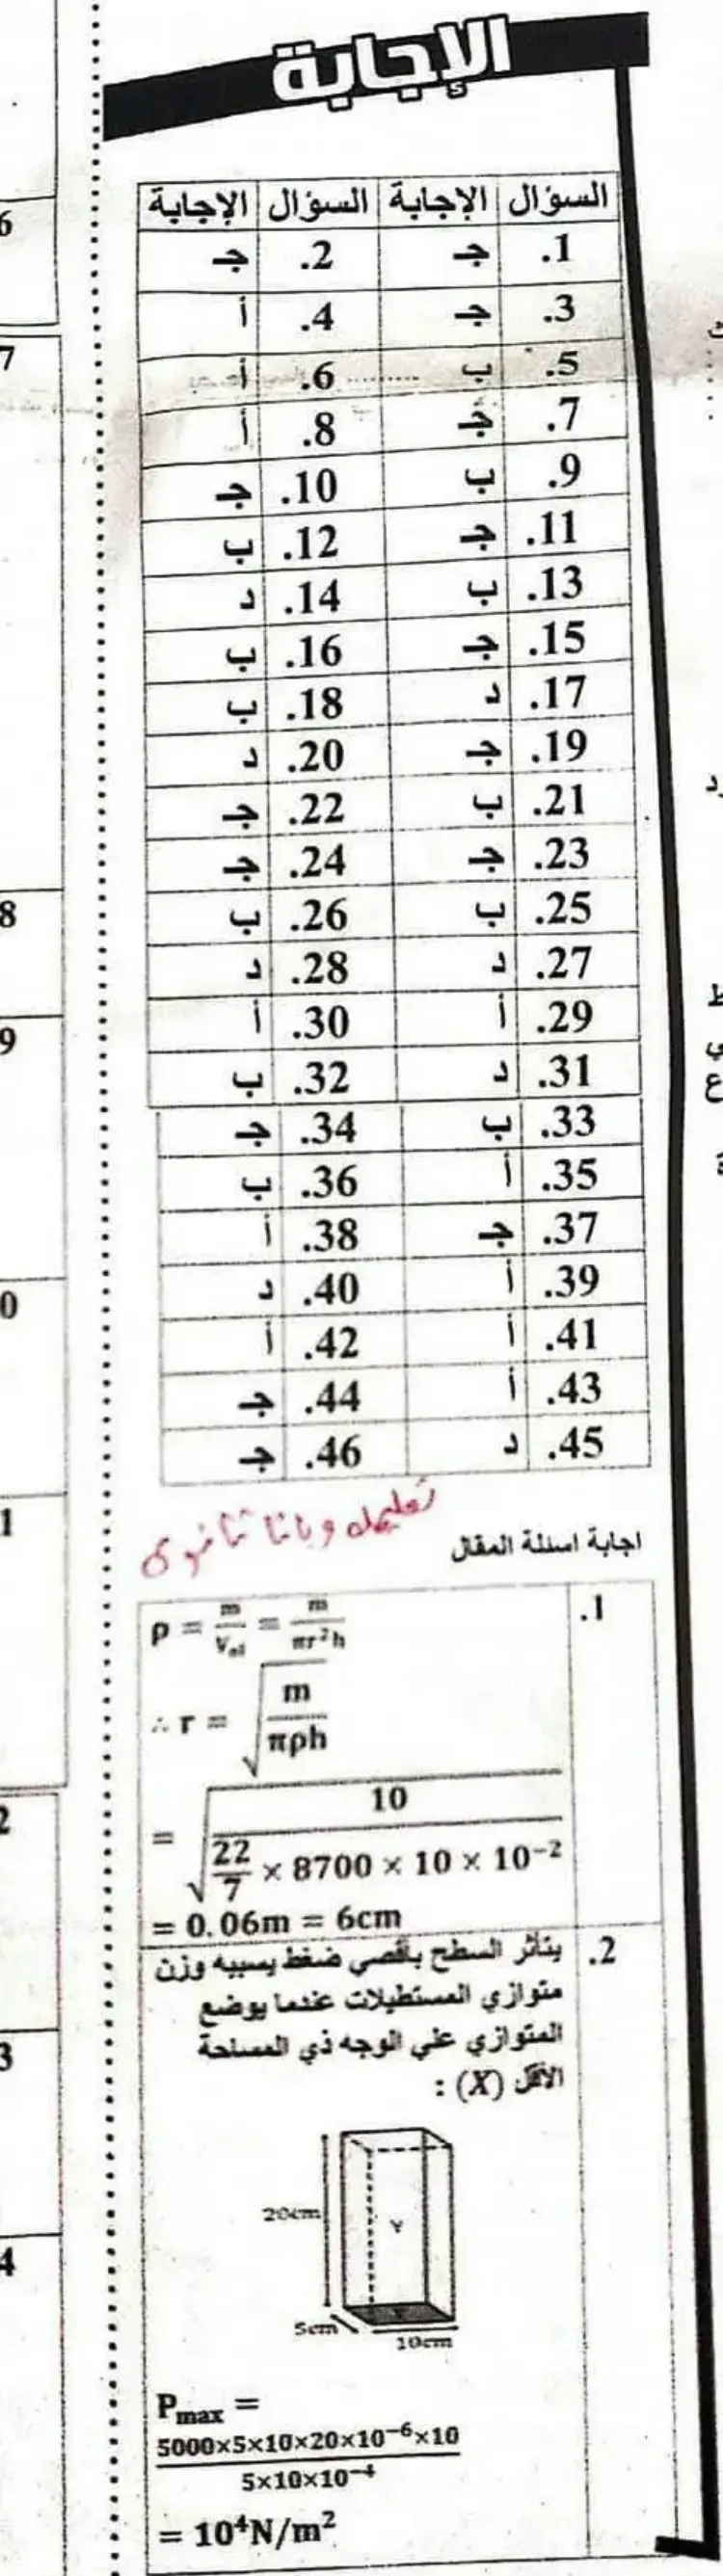 الإجابة
السؤال الإجابة السؤال الإجابة
1. جـ 2. جـ
3. جـ 4. أ
5. ب 6. أ
7. جـ 8. أ
9. ب 10. جـ
11. جـ 12. ب
13. ب 14. د
15. جـ 16. ب
17. د 18. ب
19. جـ 20. د
21. ب 22. جـ
23. جـ 24. جـ
25. ب 26. ب
27. د 28. د
29. أ 30. أ
31. د 32. ب
33. ب 34. جـ
35. أ 36. ب
37. جـ 38. أ
39. أ 40. د
41. أ 42. أ
43. أ 44. جـ
45. د 46. جـ
اجابة اسئلة المقال
1.
ρ = m/V_ol = m/πr²h
∴ r = √(m/πρh)
= √(10/(22/7 × 8700 × 10 × 10⁻²))
= 0.06m = 6cm
2. يتأثر السطح بأقصي ضغط يسببه وزن
متوازي المستطيلات عندما يوضع
المتوازي علي الوجه ذي المساحة
الأقل (X) :
20cm
Y
5cm
10cm
P_max =
5000×5×10×20×10⁻⁶×10
5×10×10⁻⁴
= 10⁴N/m²
6
7
8
9
0
1
2
3
4